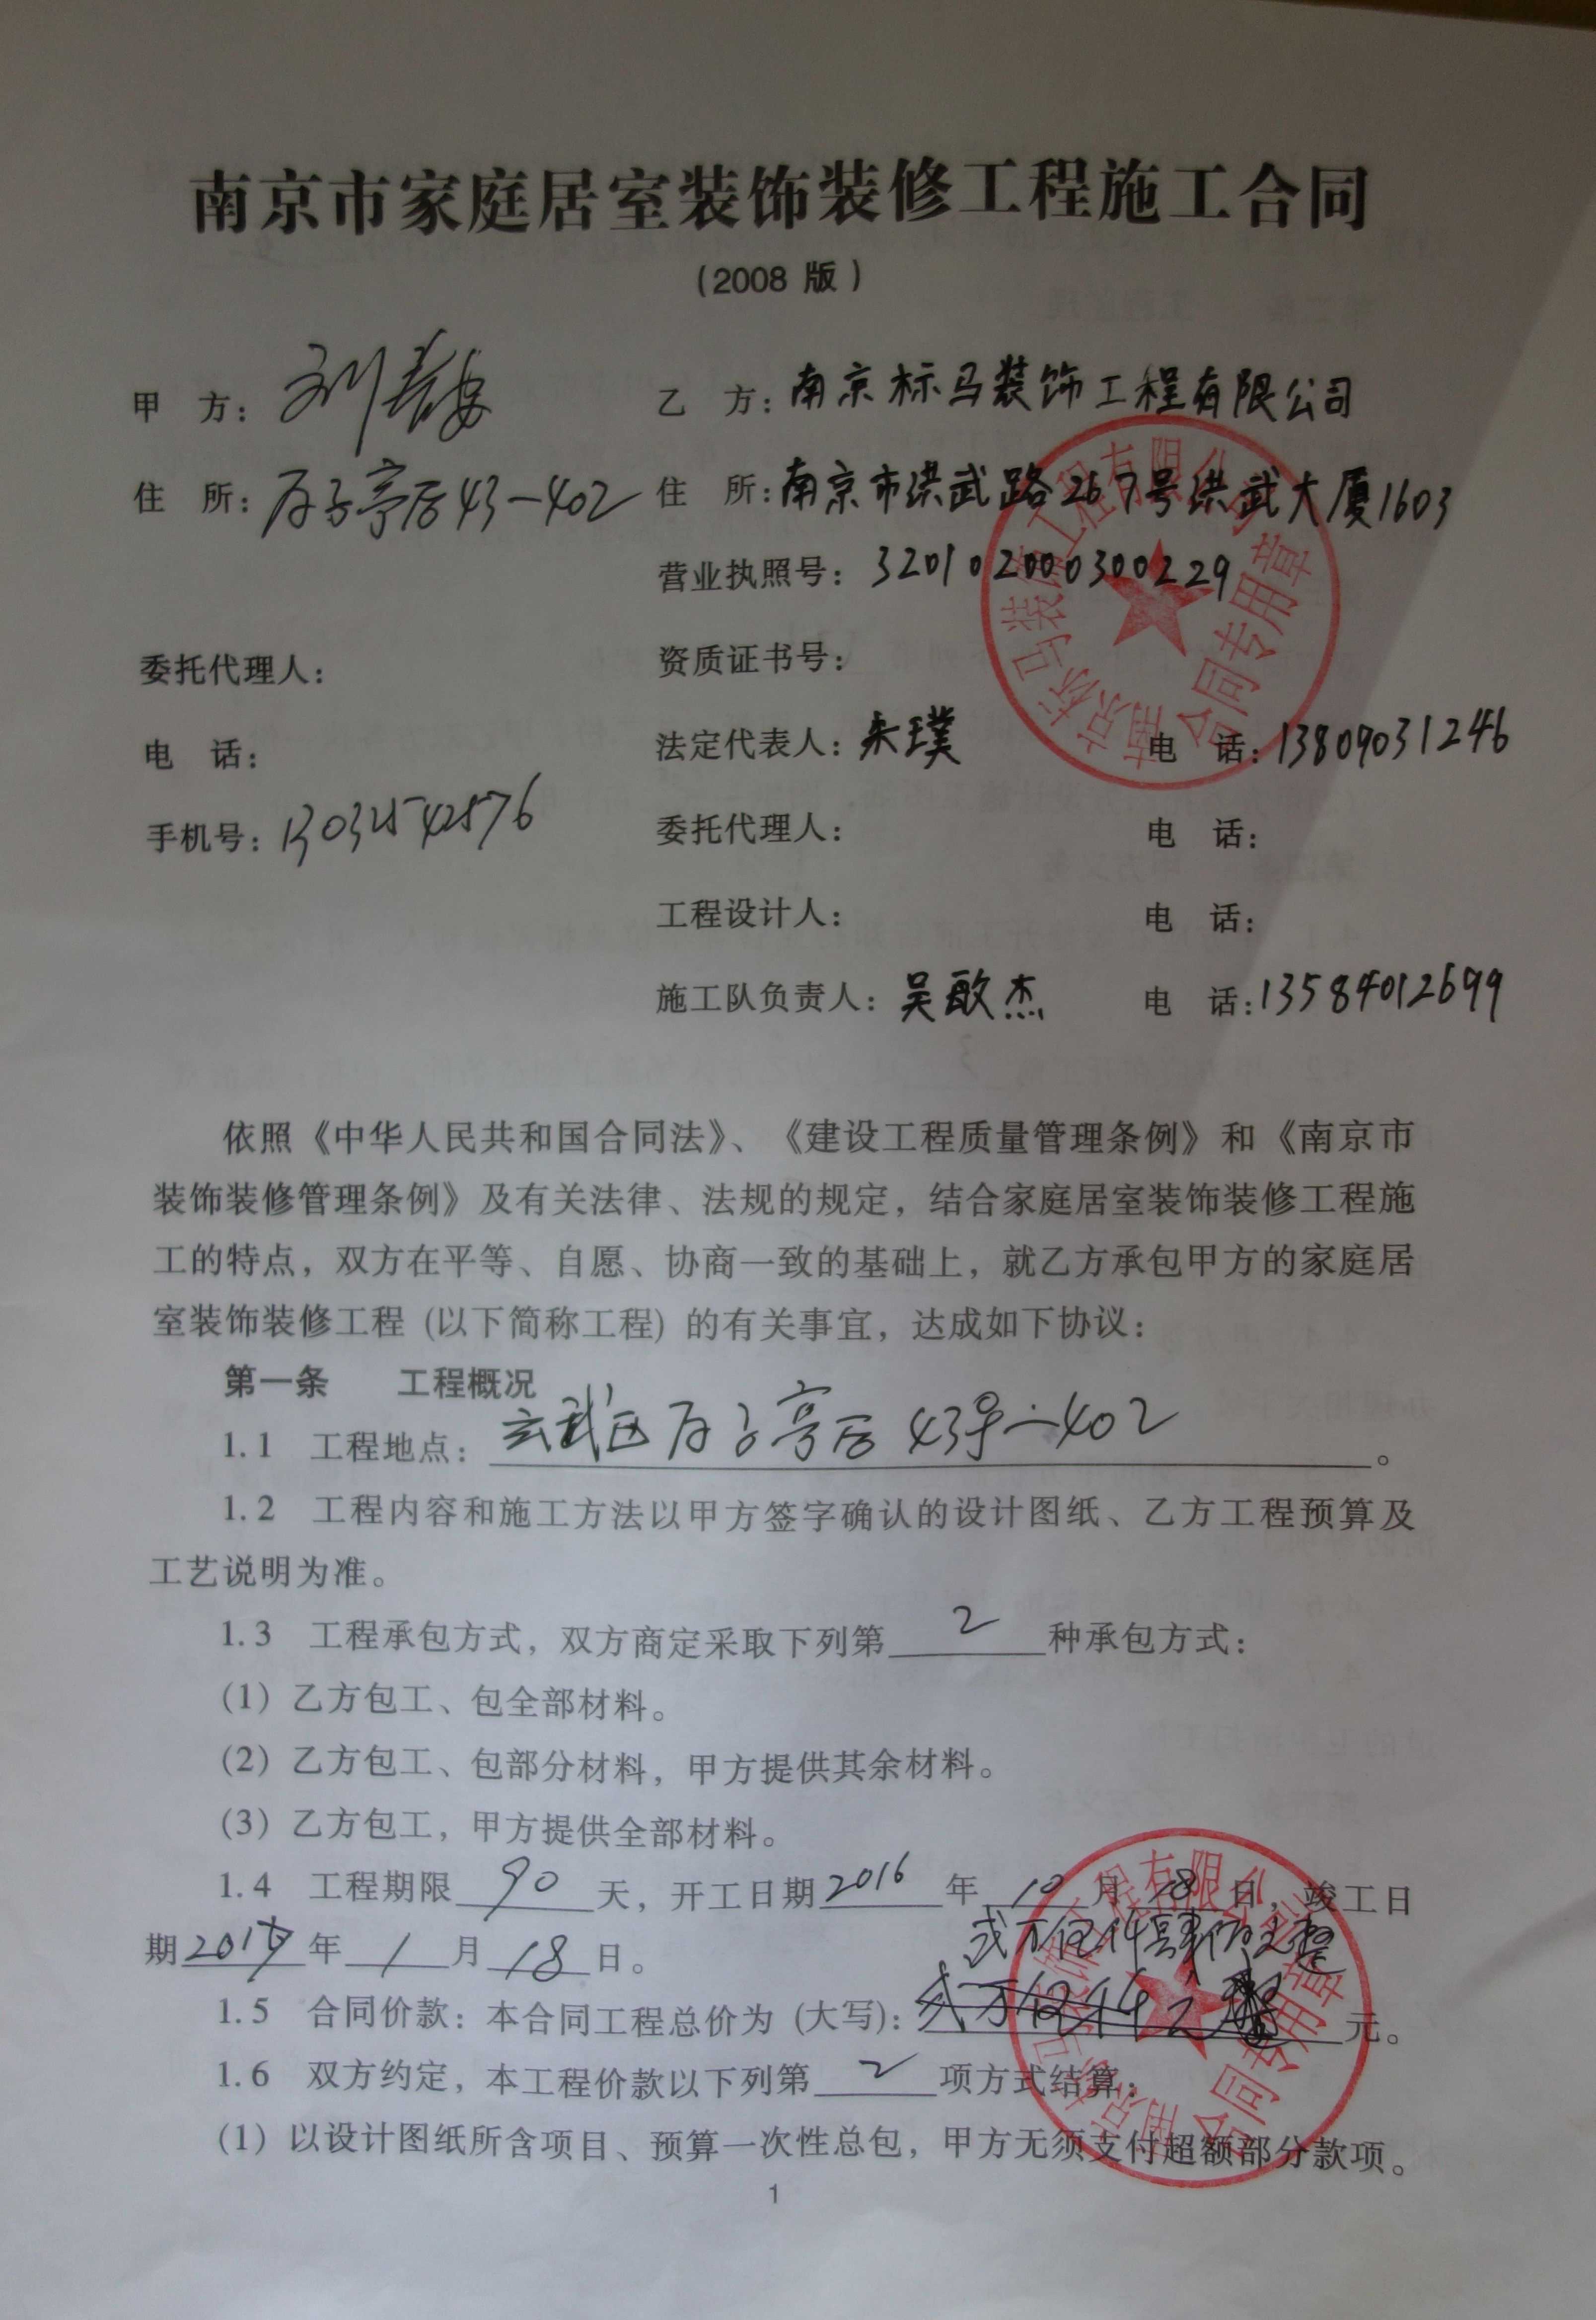 南京市家庭居室装饰装修工程施工合同
(2008 版)
甲 方: 乙 方: 南京标马装饰工程有限公司
住 所: 后43-402 住 所: 南京市洪武路267号洪武大厦1603
营业执照号: 320102000300229
委托代理人: 资质证书号:
电 话: 法定代表人: 电 话: 13809031246
手机号: 委托代理人: 电 话:
工程设计人: 电 话:
施工队负责人: 吴敏杰 电 话: 13584012699
依照《中华人民共和国合同法》、《建设工程质量管理条例》和《南京市
装饰装修管理条例》及有关法律、法规的规定，结合家庭居室装饰装修工程施
工的特点，双方在平等、自愿、协商一致的基础上，就乙方承包甲方的家庭居
室装饰装修工程 (以下简称工程) 的有关事宜，达成如下协议:
第一条 工程概况
1.1 工程地点: 玄武区 后 43号-402 。
1.2 工程内容和施工方法以甲方签字确认的设计图纸、乙方工程预算及
工艺说明为准。
1.3 工程承包方式，双方商定采取下列第 2 种承包方式:
(1) 乙方包工、包全部材料。
(2) 乙方包工、包部分材料，甲方提供其余材料。
(3) 乙方包工，甲方提供全部材料。
1.4 工程期限 90 天，开工日期 2016 年 10 月 18 日，竣工日
期 2017 年 1 月 18 日。
贰万伍仟肆佰元整
1.5 合同价款: 本合同工程总价为 (大写): 元。
1.6 双方约定，本工程价款以下列第 2 项方式结算:
(1) 以设计图纸所含项目、预算一次性总包，甲方无须支付超额部分款项。
1
南京标马装饰工程有限公司
合同专用章
南京标马装饰工程有限公司
合同专用章